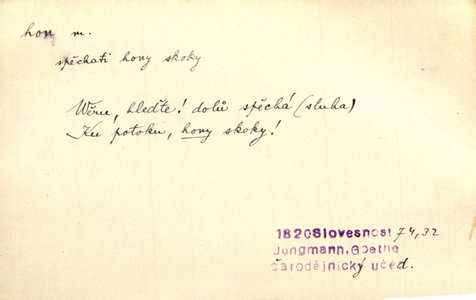 hon m.
spěchati hony skoky
Wěru, hleďte! dolů spěchá (sluha)
Ku potoku, hony skoky!
1820Slovesnost 74,32
Jungmann, Goethe
čarodějnický učed.